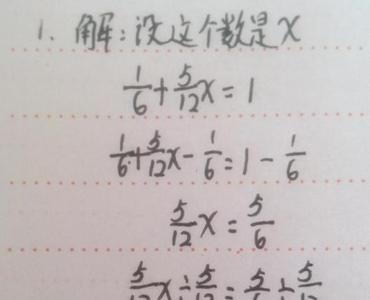 1. 解:设这个数是x
1/6+5/12x=1
1/6+5/12x-1/6=1-1/6
5/12x=5/6
5/12x÷5/12=5/6÷5/12